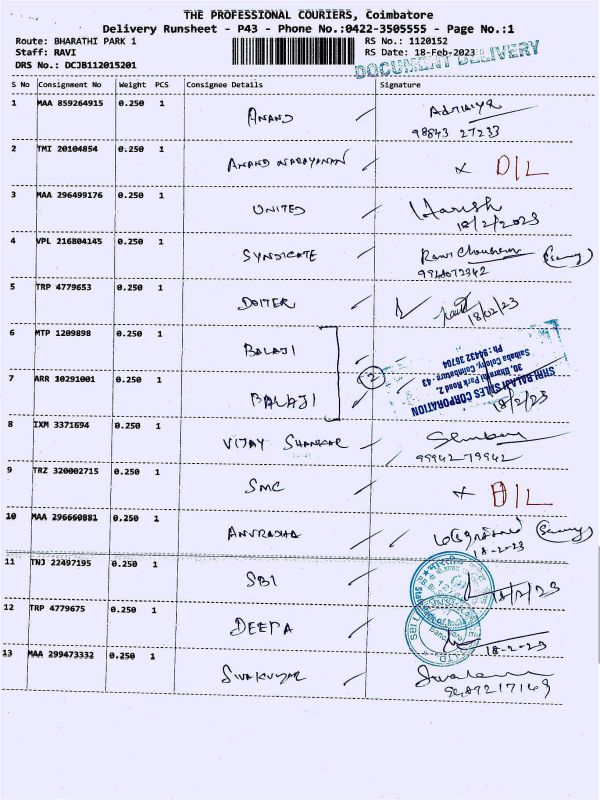 THE PROFESSIONAL COURIERS, Coimbatore
Delivery Runsheet - P43 - Phone No.:0422-3505555 - Page No.:1
Route: BHARATHI PARK 1 RS No.: 1120152
Staff: RAVI RS Date: 18-Feb-2023
DRS No.: DCJB112015201
DOCUMENT DELIVERY
S No Consignment No Weight PCS Consignee Details Signature
1 MAA 859264915 0.250 1 ANAND
98843 27233
2 TMI 20104854 0.250 1 ANAND NARAYANAN x D/L
3 MAA 296499176 0.250 1 UNITED Harish
18/2/2023
4 VPL 216804145 0.250 1 SYNDICATE
5 TRP 4779653 0.250 1 18/02/23
6 MTP 1209898 0.250 1 BALAJI
SHRI BALAJI SALES CORPORATION
30, Bharathi Park Road 2,
Saibaba Colony, Coimbatore - 43
Ph : 94432 36704
7 ARR 10291001 0.250 1 BALAJI 2 18/2/23
8 IXM 3371694 0.250 1 VIJAY SHANKAR
99942 79942
9 TRZ 320002715 0.250 1 SMC x D/L
10 MAA 296660881 0.250 1 ANURADHA
18-2-23
11 TNJ 22497195 0.250 1 SBI
State Bank of India
12 TRP 4779675 0.250 1 DEEPA
18-2-23
13 MAA 299473332 0.250 1 SIVAKUMAR